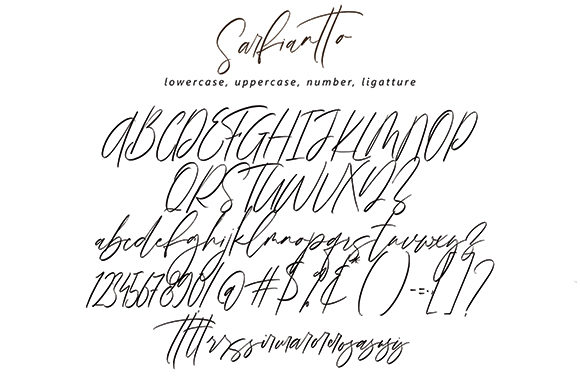 Sarfiantto
lowercase, uppercase, number, ligatture
ABCDEFGHIJKLMNOP
QRSTUVWXYZ
abcdefghijklmnopqrstuvwxyz
1234567890!@#$%¢*()-=:[]?